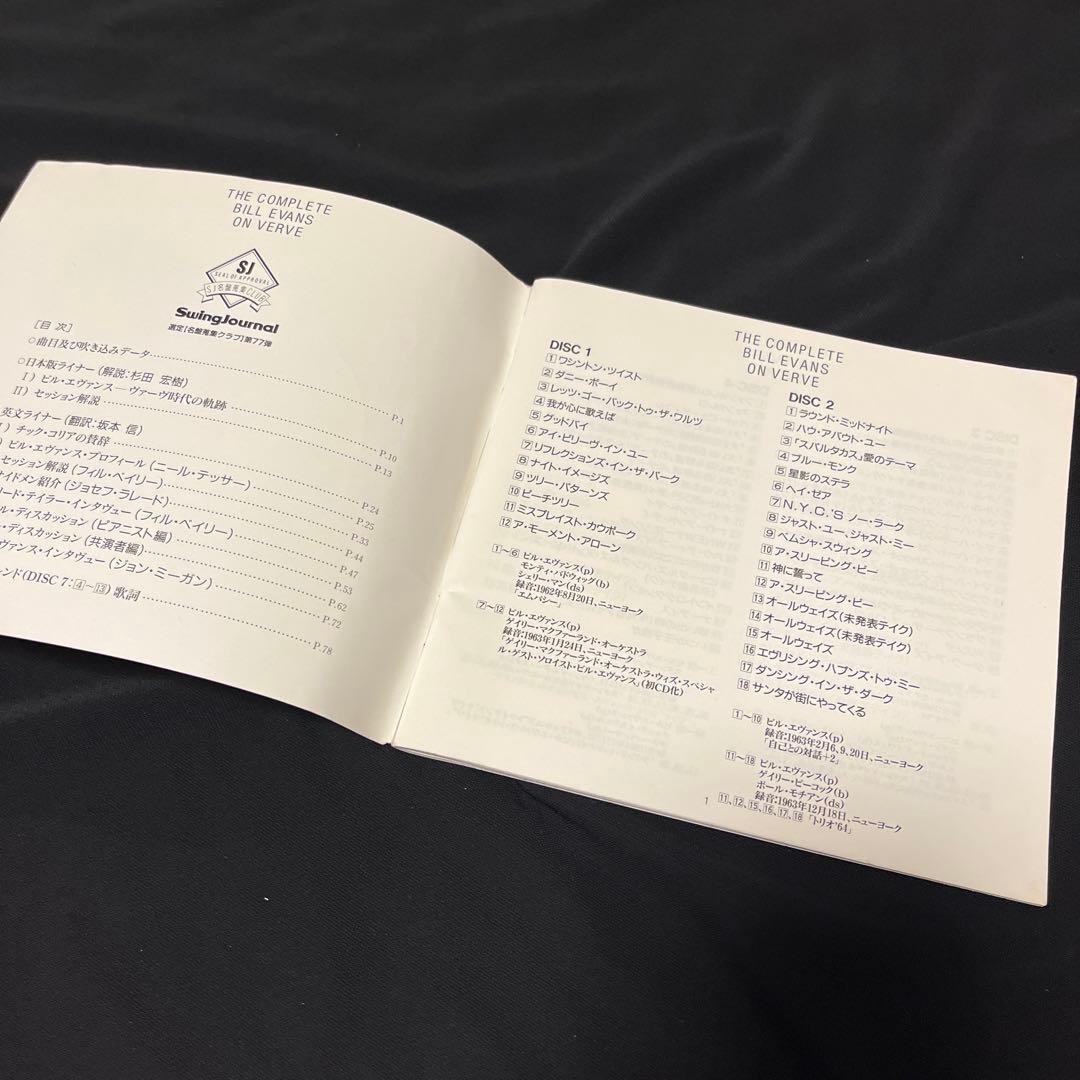 THE COMPLETE
BILL EVANS
ON VERVE
SJ
SEAL OF APPROVAL
SJ名盤蒐集CLUB
SwingJournal
選定[名盤蒐集クラブ]第77弾
[目 次]
○曲目及び吹き込みデータ……P.1
○日本版ライナー(解説:杉田 宏樹)
I)ビル・エヴァンス―ヴァーヴ時代の軌跡……P.10
II)セッション解説……P.13
英文ライナー(翻訳:坂本 信)
I)チック・コリアの賛辞……P.24
)ビル・エヴァンス・プロフィール(ニール・テッサー)……P.25
セッション解説(フィル・ベイリー)……P.33
イドメン紹介(ジョセフ・ラレード)……P.44
リード・テイラー・インタヴュー(フィル・ベイリー)……P.47
ル・ディスカッション(ピアニスト編)……P.53
ル・ディスカッション(共演者編)……P.62
ヴァンス・インタヴュー(ジョン・ミーガン)……P.72
レンド(DISC 7:④~⑬)歌詞……P.78
THE COMPLETE
BILL EVANS
ON VERVE
DISC 1
1 ワシントン・ツイスト
2 ダニー・ボーイ
3 レッツ・ゴー・バック・トゥ・ザ・ワルツ
4 我が心に歌えば
5 グッドバイ
6 アイ・ビリーヴ・イン・ユー
7 リフレクションズ・イン・ザ・パーク
8 ナイト・イメージズ
9 ツリー・パターンズ
10 ピーチツリー
11 ミスプレイスト・カウポーク
12 ア・モーメント・アローン
1~6 ビル・エヴァンス(p)
モンティ・バドウィッグ(b)
シェリー・マン(ds)
録音:1962年8月20日、ニューヨーク
「エムパシー」
7~12 ビル・エヴァンス(p)
ゲイリー・マクファーランド・オーケストラ
録音:1963年1月24日、ニューヨーク
「ゲイリー・マクファーランド・オーケストラ・ウィズ・スペシャ
ル・ゲスト・ソロイスト・ビル・エヴァンス」(初CD化)
DISC 2
1 ラウンド・ミッドナイト
2 ハウ・アバウト・ユー
3 「スパルタカス」愛のテーマ
4 ブルー・モンク
5 星影のステラ
6 ヘイ・ゼア
7 N.Y.C.'S ノー・ラーク
8 ジャスト・ユー、ジャスト・ミー
9 ベムシャ・スウィング
10 ア・スリーピング・ビー
11 神に誓って
12 ア・スリーピング・ビー
13 オールウェイズ(未発表テイク)
14 オールウェイズ(未発表テイク)
15 オールウェイズ
16 エヴリシング・ハプンズ・トゥ・ミー
17 ダンシング・イン・ザ・ダーク
18 サンタが街にやってくる
1~10 ビル・エヴァンス(p)
録音:1963年2月6、9、20日、ニューヨーク
「自己との対話+2」
11~18 ビル・エヴァンス(p)
ゲイリー・ピーコック(b)
ポール・モチアン(ds)
録音:1963年12月18日、ニューヨーク
11、12、15、16、17、18 「トリオ'64」
1